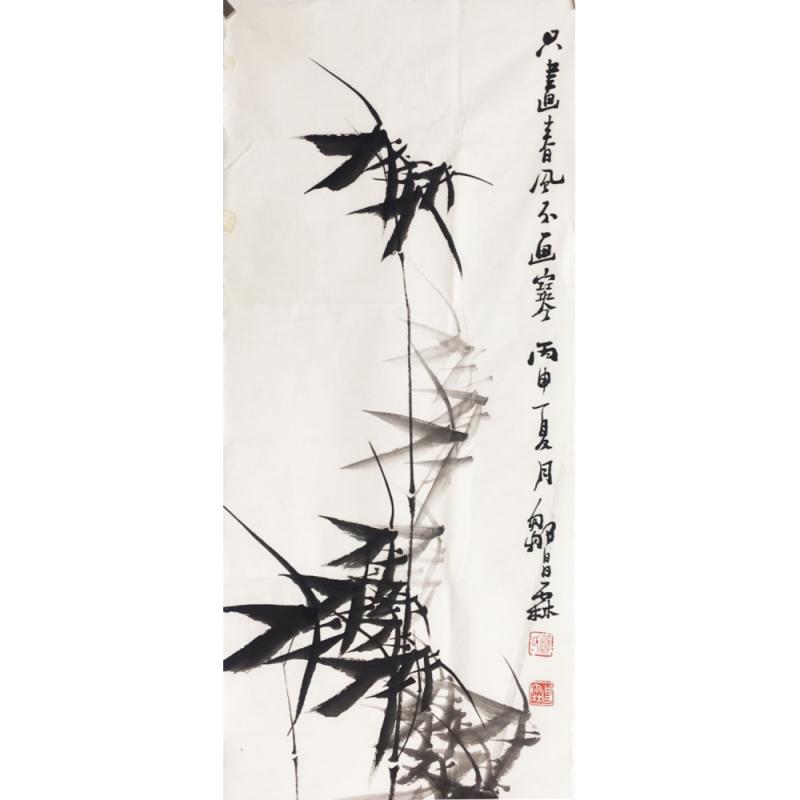 只畫春風不画寒 丙申夏月 鄒昌霖